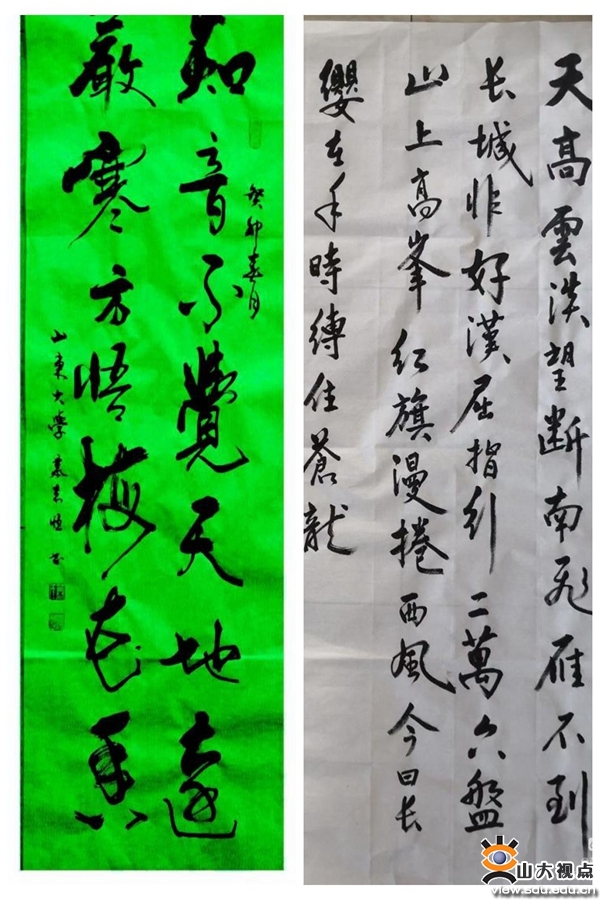 知音不覺天地遠
癸卯春月
嚴寒方悟梅花香
山東大學
天高雲淡望斷南飛雁不到
长城非好漢屈指行二萬六盤
山上高峯红旗漫捲西風今日长
纓在手時縛住蒼龍
山大视点
view.sdu.edu.cn